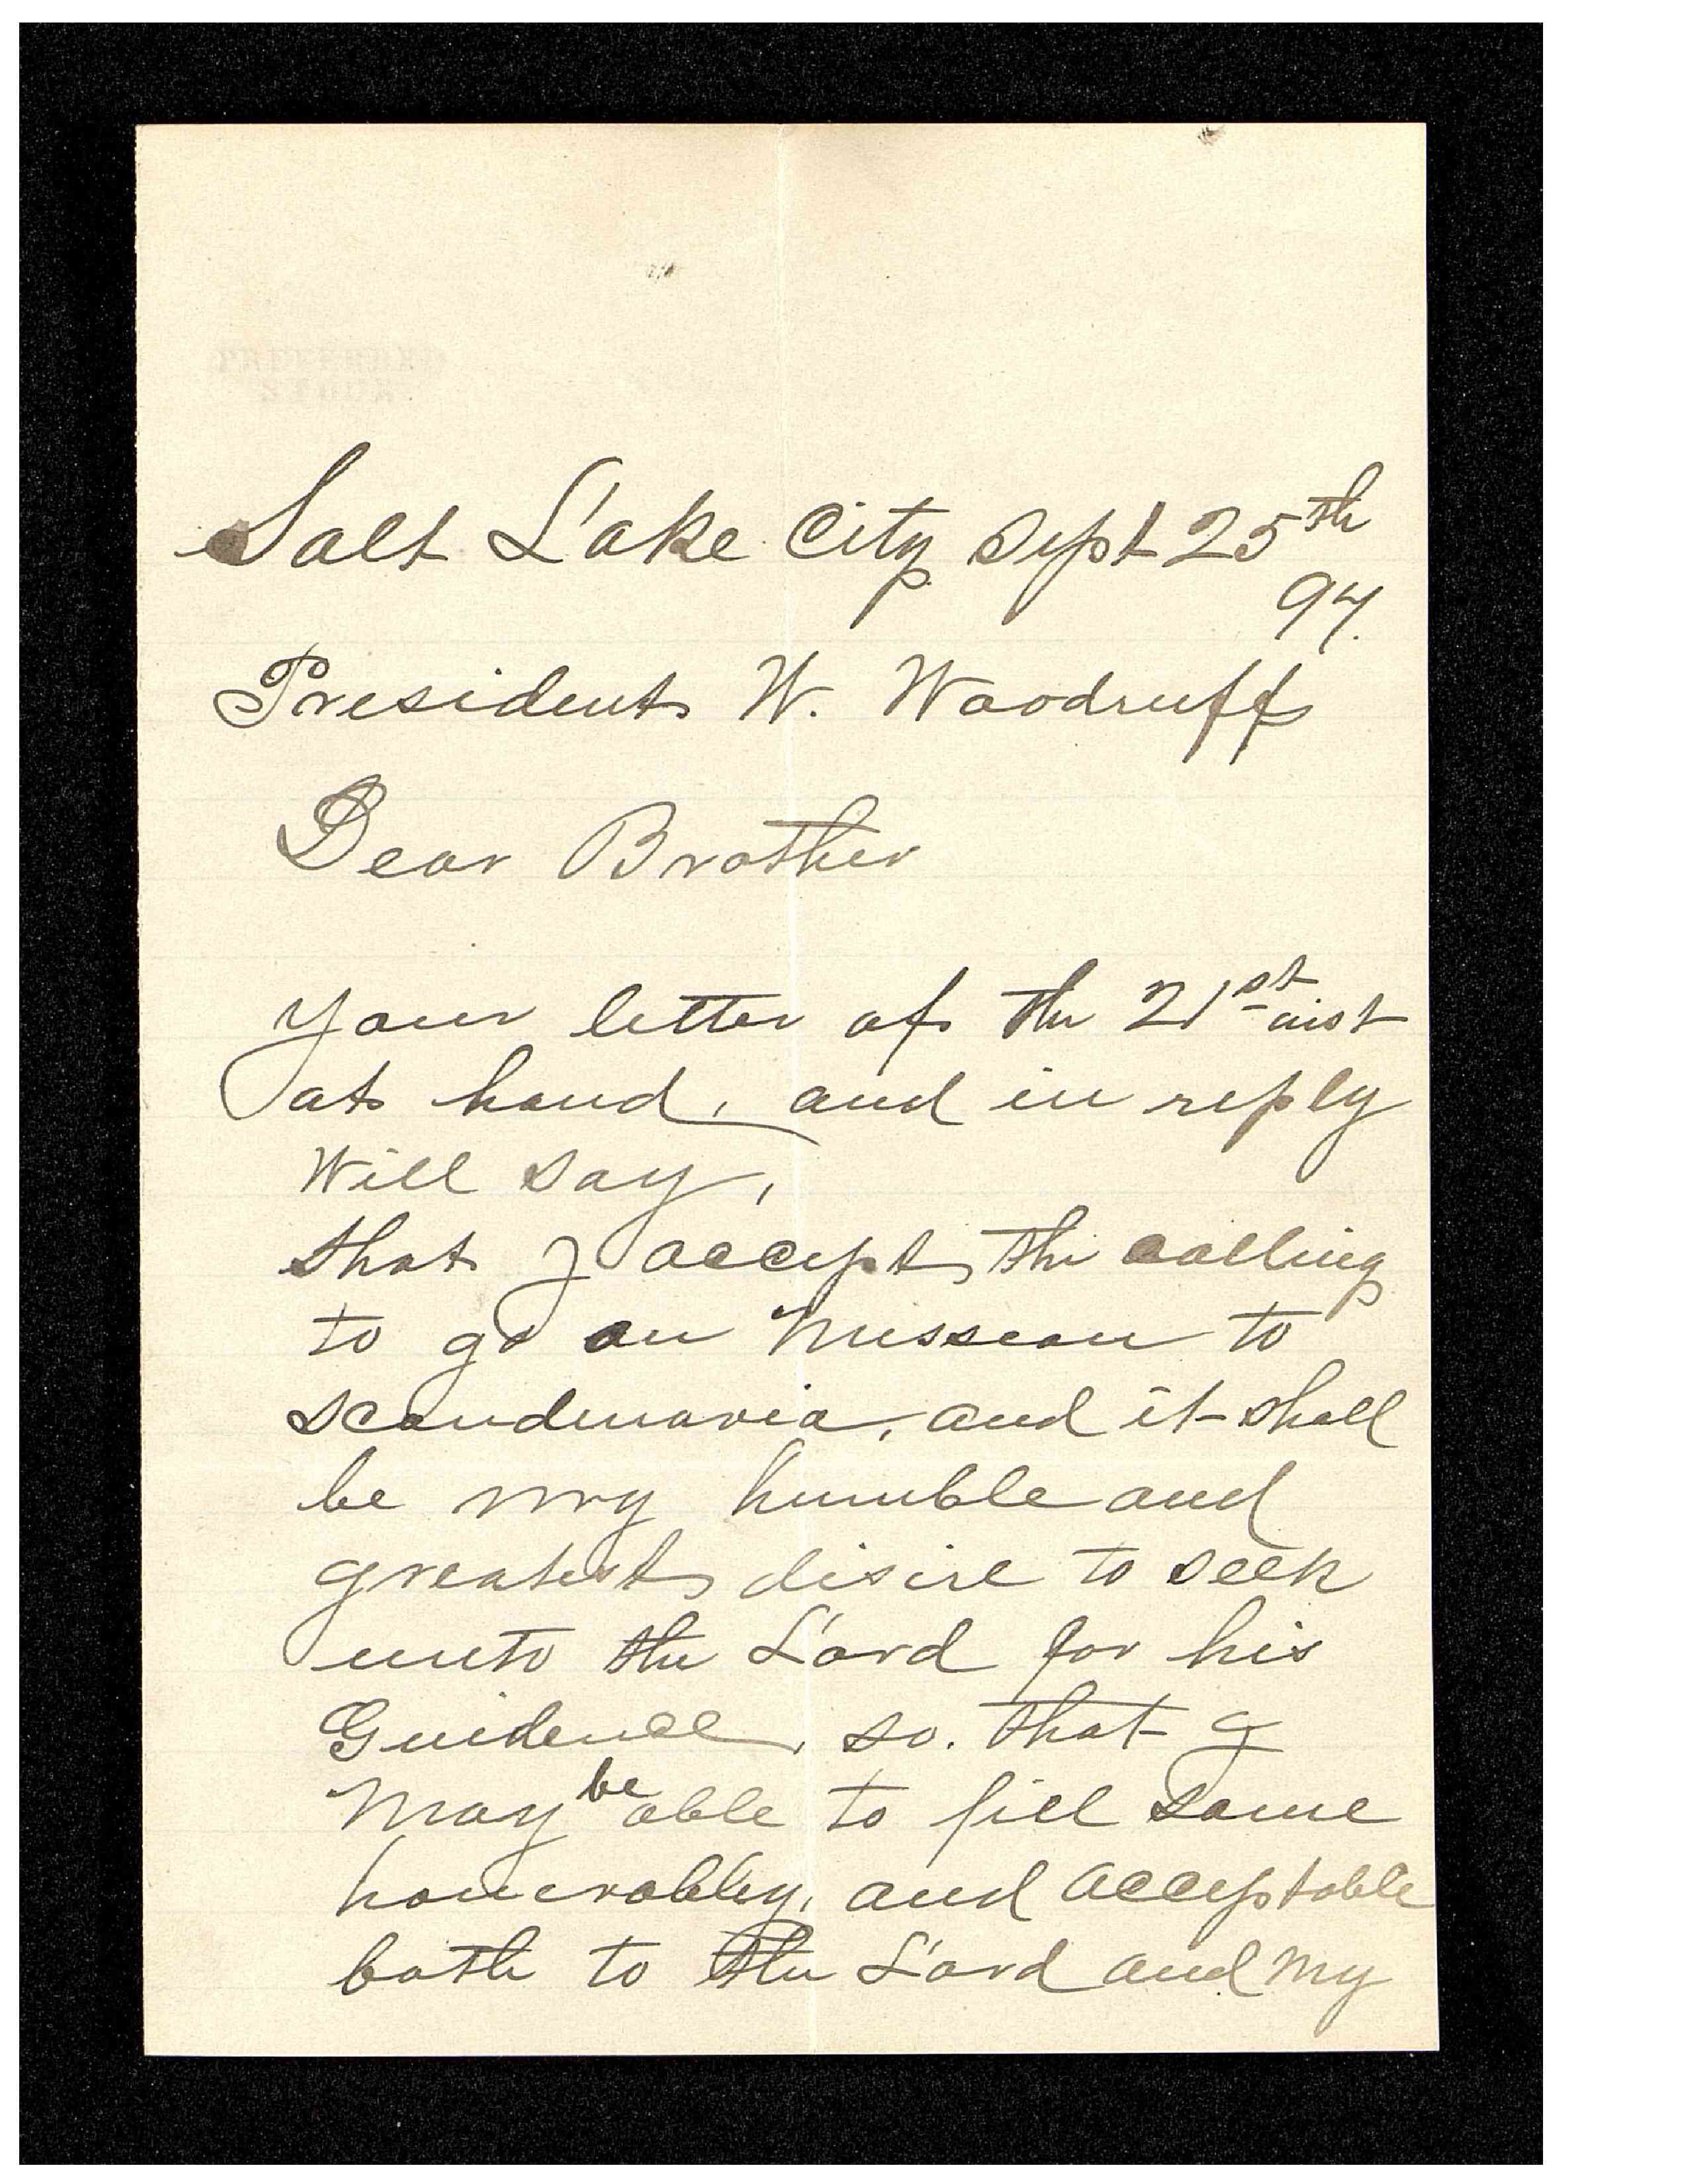 Salt Lake City Sept 25th
94.
President W. Woodruff
Dear Brother
Your letter of the 21st inst
at hand, and in reply
Will say,
that I accept the calling
to go on Mission to
Scandinavia, and it shall
be my humble and
greatest disire to seek
unto the Lord for his
Guidence, so. that I
May be able to fill same
honerabley, and acceptable
both to the Lord and My